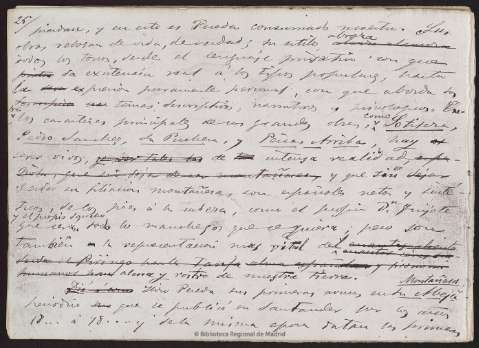 25/
piadan, y en esto es Pereda consumado maestro. Sus
obras rebosan de vida, de verdad; su estilo abarca
todos los tonos, desde el lenguaje privativo con que
da existencia real a los tipos populares, hasta
la expresión puramente personal, con que aborda los
temas descriptivos, narrativos o psicológicos.
los caracteres principales de sus grandes obras, como Sotileza,
Pedro Sanchez, La Puchera, y Peñas Arriba, hay
seres vivos, de intensa realidad,
y que sin dejar
de ser su filiación montañesa, son españoles netos y
de los pies a la cabeza, como el propio Dn. Quijote
y el propio Sancho
que sería todo lo manchegos que se quiera; pero son
también la representación más vital del
alma y rostro de nuestra tierra.
Hizo Pereda sus primeras armas en La Abeja Montañesa
periódico que se publicó en Santander por los años
18... a 18..., y de la misma epoca datan los primeros
© Biblioteca Regional de Madrid